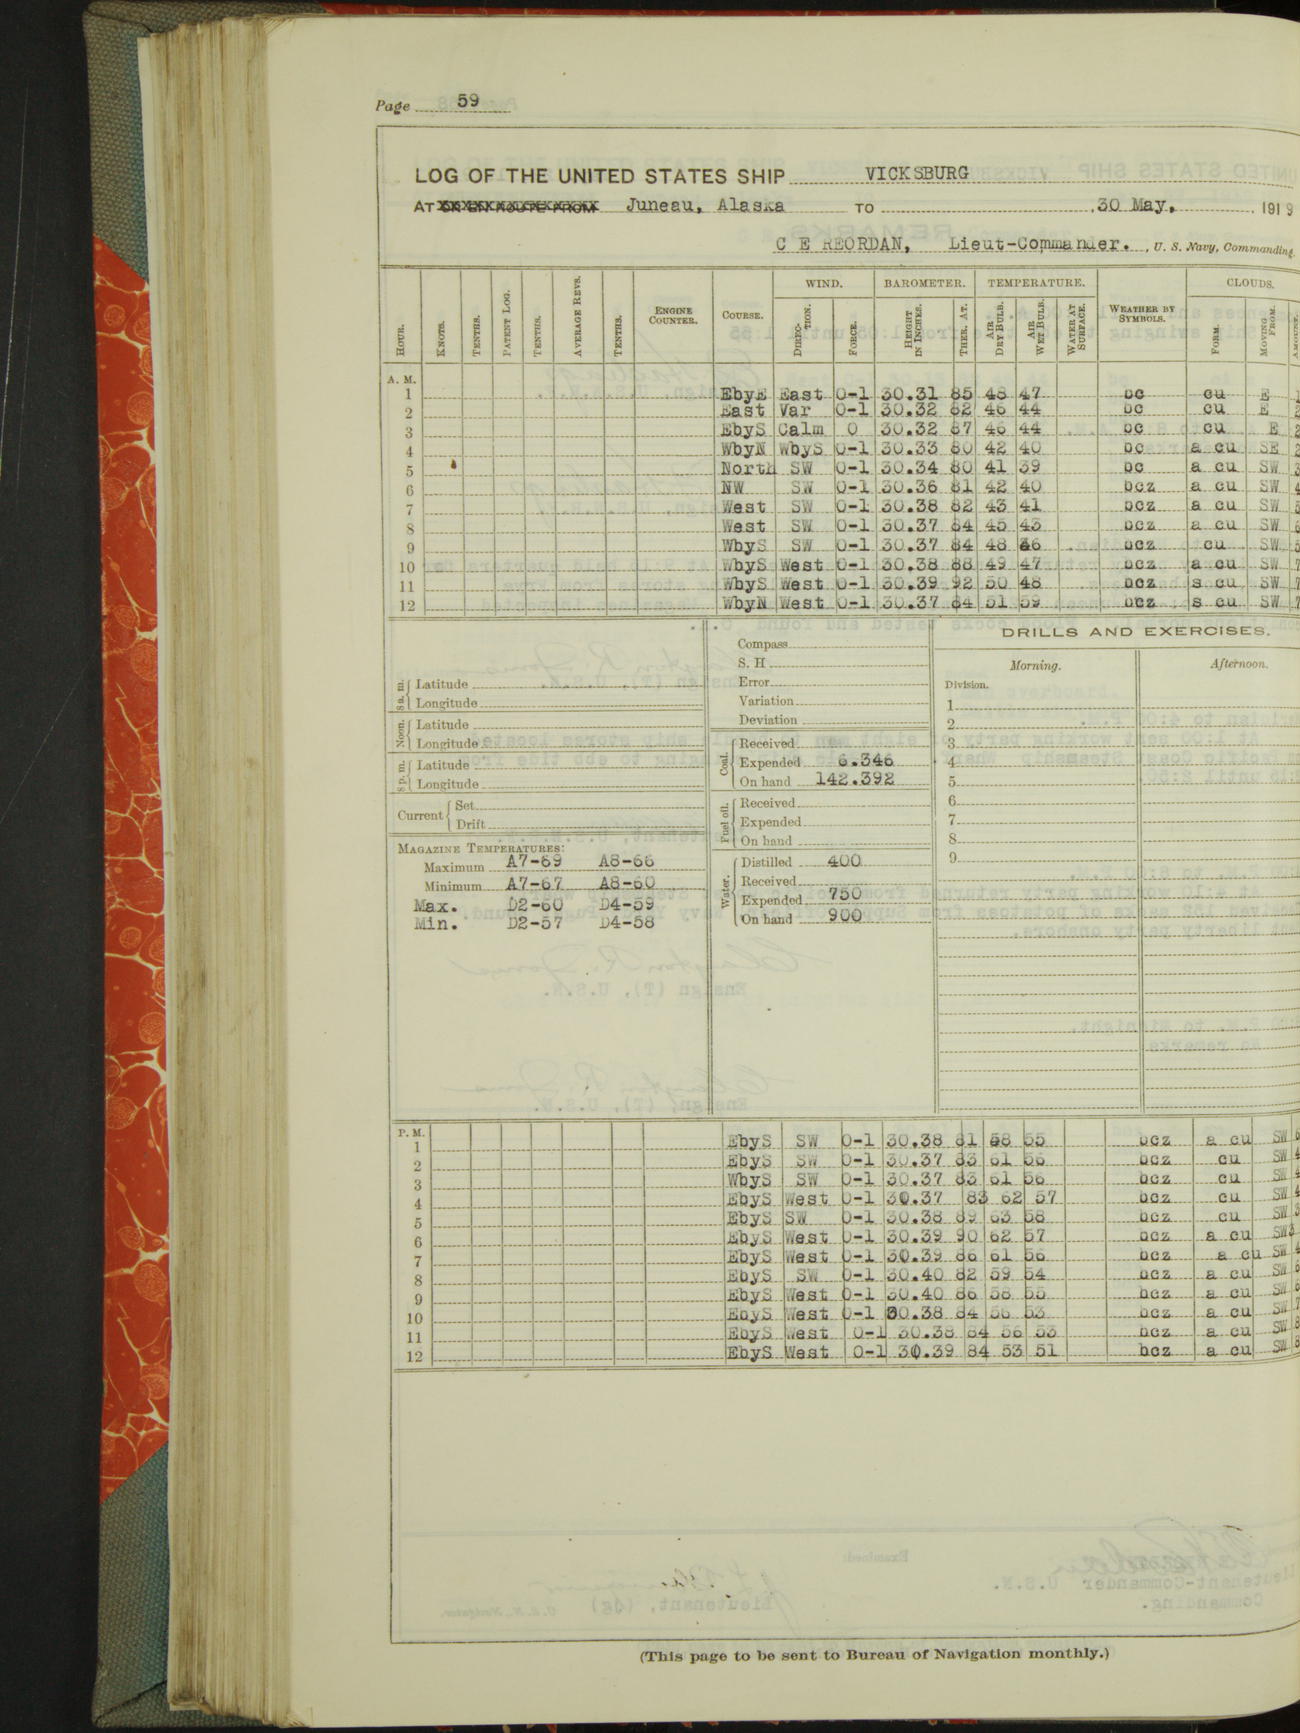 Page 59
LOG OF THE UNITED STATES SHIP VICKSBURG
AT Juneau, Alaska TO 30 May, 1919
C E REORDAN, Lieut-Commander. , U. S. Navy, Commanding.
WIND. BAROMETER. TEMPERATURE. CLOUDS.
HOUR. KNOTS. TENTHS. PATENT LOG. TENTHS. AVERAGE REVS. TENTHS. ENGINE COUNTER. COURSE. DIREC-TION. FORCE. HEIGHT IN INCHES. THER. AT. AIR DRY BULB. AIR WET BULB. WATER AT SURFACE. WEATHER BY SYMBOLS. FORM. MOVING FROM. AMOUNT.
A. M.
1 EbyE East 0-1 30.31 85 48 47 bc cu E 1
2 East Var 0-1 30.32 82 46 44 bc cu E 2
3 EbyS Calm 0 30.32 87 46 44 bc cu E 2
4 WbyN WbyS 0-1 30.33 80 42 40 bc a cu SE 2
5 North SW 0-1 30.34 80 41 39 bc a cu SW 3
6 NW SW 0-1 30.36 81 42 40 bcz a cu SW 4
7 West SW 0-1 30.38 82 43 41 bcz a cu SW 5
8 West SW 0-1 30.37 84 45 43 bcz a cu SW 6
9 WbyS SW 0-1 30.37 84 48 46 bcz cu SW 5
10 WbyS West 0-1 30.38 88 49 47 bcz a cu SW 7
11 WbyS West 0-1 30.39 92 50 48 bcz s cu SW 7
12 WbyN West 0-1 30.37 84 51 59 bcz s cu SW 7
DRILLS AND EXERCISES.
Morning. Afternoon.
Division.
1
2
3
4
5
6
7
8
9
8 a. m. Latitude
Longitude
Noon. Latitude
Longitude
8 p. m. Latitude
Longitude
Current Set
Drift
MAGAZINE TEMPERATURES:
Maximum A7-69 A8-66
Minimum A7-67 A8-60
Max. D2-60 D4-59
Min. D2-57 D4-58
Compass
S. H
Error
Variation
Deviation
Coal. Received
Expended 6.346
On hand 142.392
Fuel oil. Received
Expended
On hand
Water. Distilled 400
Received
Expended 750
On hand 900
P. M.
1 EbyS SW 0-1 30.38 81 58 55 bcz a cu SW 6
2 EbyS SW 0-1 30.37 83 61 56 bcz cu SW 4
3 WbyS SW 0-1 30.37 83 61 56 bcz cu SW 4
4 EbyS West 0-1 30.37 83 62 57 bcz cu SW 4
5 EbyS SW 0-1 30.38 89 63 58 bcz cu SW 3
6 EbyS West 0-1 30.39 90 62 57 bcz a cu SW 3
7 EbyS West 0-1 30.39 86 61 56 bcz a cu SW 4
8 EbyS SW 0-1 30.40 82 59 54 bcz a cu SW 6
9 EbyS West 0-1 30.40 86 58 55 bcz a cu SW 6
10 EbyS West 0-1 30.38 84 56 53 bcz a cu SW 7
11 EbyS West 0-1 30.38 84 56 53 bcz a cu SW 8
12 EbyS West 0-1 30.39 84 53 51 bcz a cu SW 8
(This page to be sent to Bureau of Navigation monthly.)